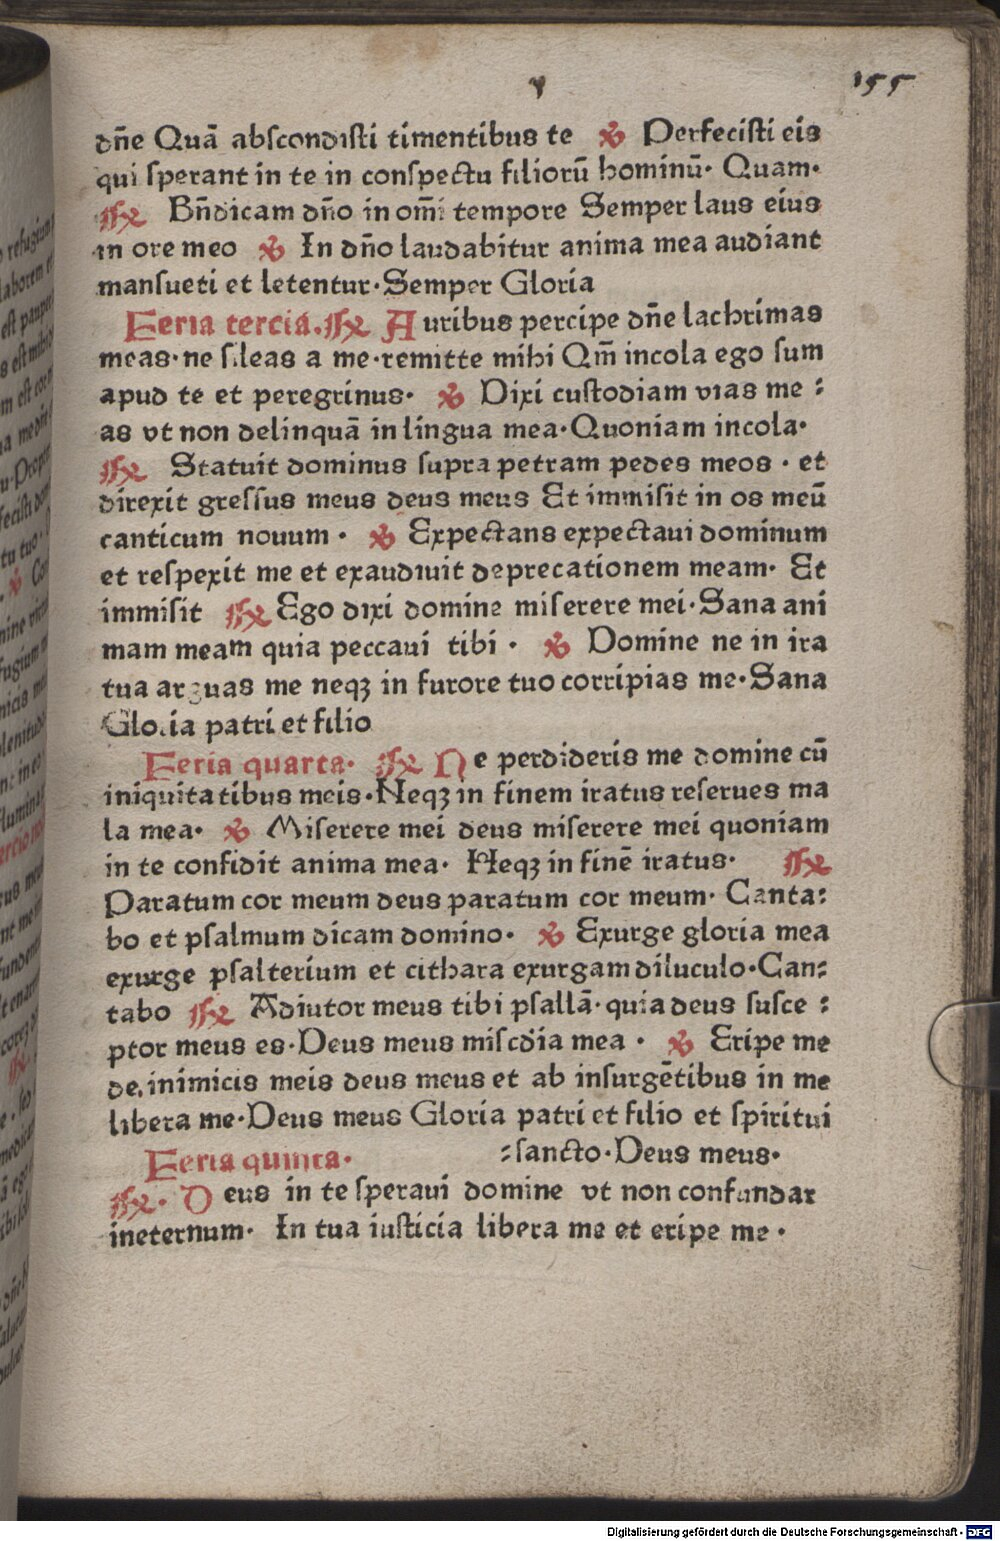 v 155
dn̄e Quā abscondisti timentibus te ℣ Perfecisti eis
qui sperant in te in conspectu filiorū hominū· Quam·
℟ Bn̄dicam dn̄o in om̄i tempore Semper laus eius
in ore meo ℣ In dn̄o laudabitur anima mea audiant
mansueti et letentur·Semper Gloria
Feria tercia.℟ Auribus percipe dn̄e lachrimas
meas·ne sileas a me·remitte mihi Qm̄ incola ego sum
apud te et peregrinus· ℣ Dixi custodiam vias me:
as vt non delinquā in lingua mea·Quoniam incola·
℟ Statuit dominus supra petram pedes meos · et
direxit gressus meus deus meus Et immisit in os meū
canticum nouum · ℣ Expectans expectaui dominum
et respexit me et exaudiuit deprecationem meam· Et
immisit ℟ Ego dixi domine miserere mei·Sana ani
mam meam quia peccaui tibi · ℣ Domine ne in ira
tua arguas me neqꝫ in furore tuo corripias me·Sana
Gloria patri et filio
Feria quarta· ℟ Ne perdideris me domine cū
iniquitatibus meis·Neqꝫ in finem iratus reserues ma
la mea· ℣ Miserere mei deus miserere mei quoniam
in te confidit anima mea· Neqꝫ in finē iratus· ℟
Paratum cor meum deus paratum cor meum· Canta:
bo et psalmum dicam domino· ℣ Exurge gloria mea
exurge psalterium et cithara exurgam diluculo·Can:
tabo ℟ Adiutor meus tibi psallā·quia deus susce :
ptor meus es·Deus meus miscd̄ia mea · ℣ Eripe me
de inimicis meis deus meus et ab insurgētibus in me
libera me·Deus meus Gloria patri et filio et spiritui
Feria quinta· :sancto·Deus meus·
℟· Deus in te speraui domine vt non confundar
ineternum· In tua iusticia libera me et eripe me ·
Digitalisierung gefördert durch die Deutsche Forschungsgemeinschaft - DFG